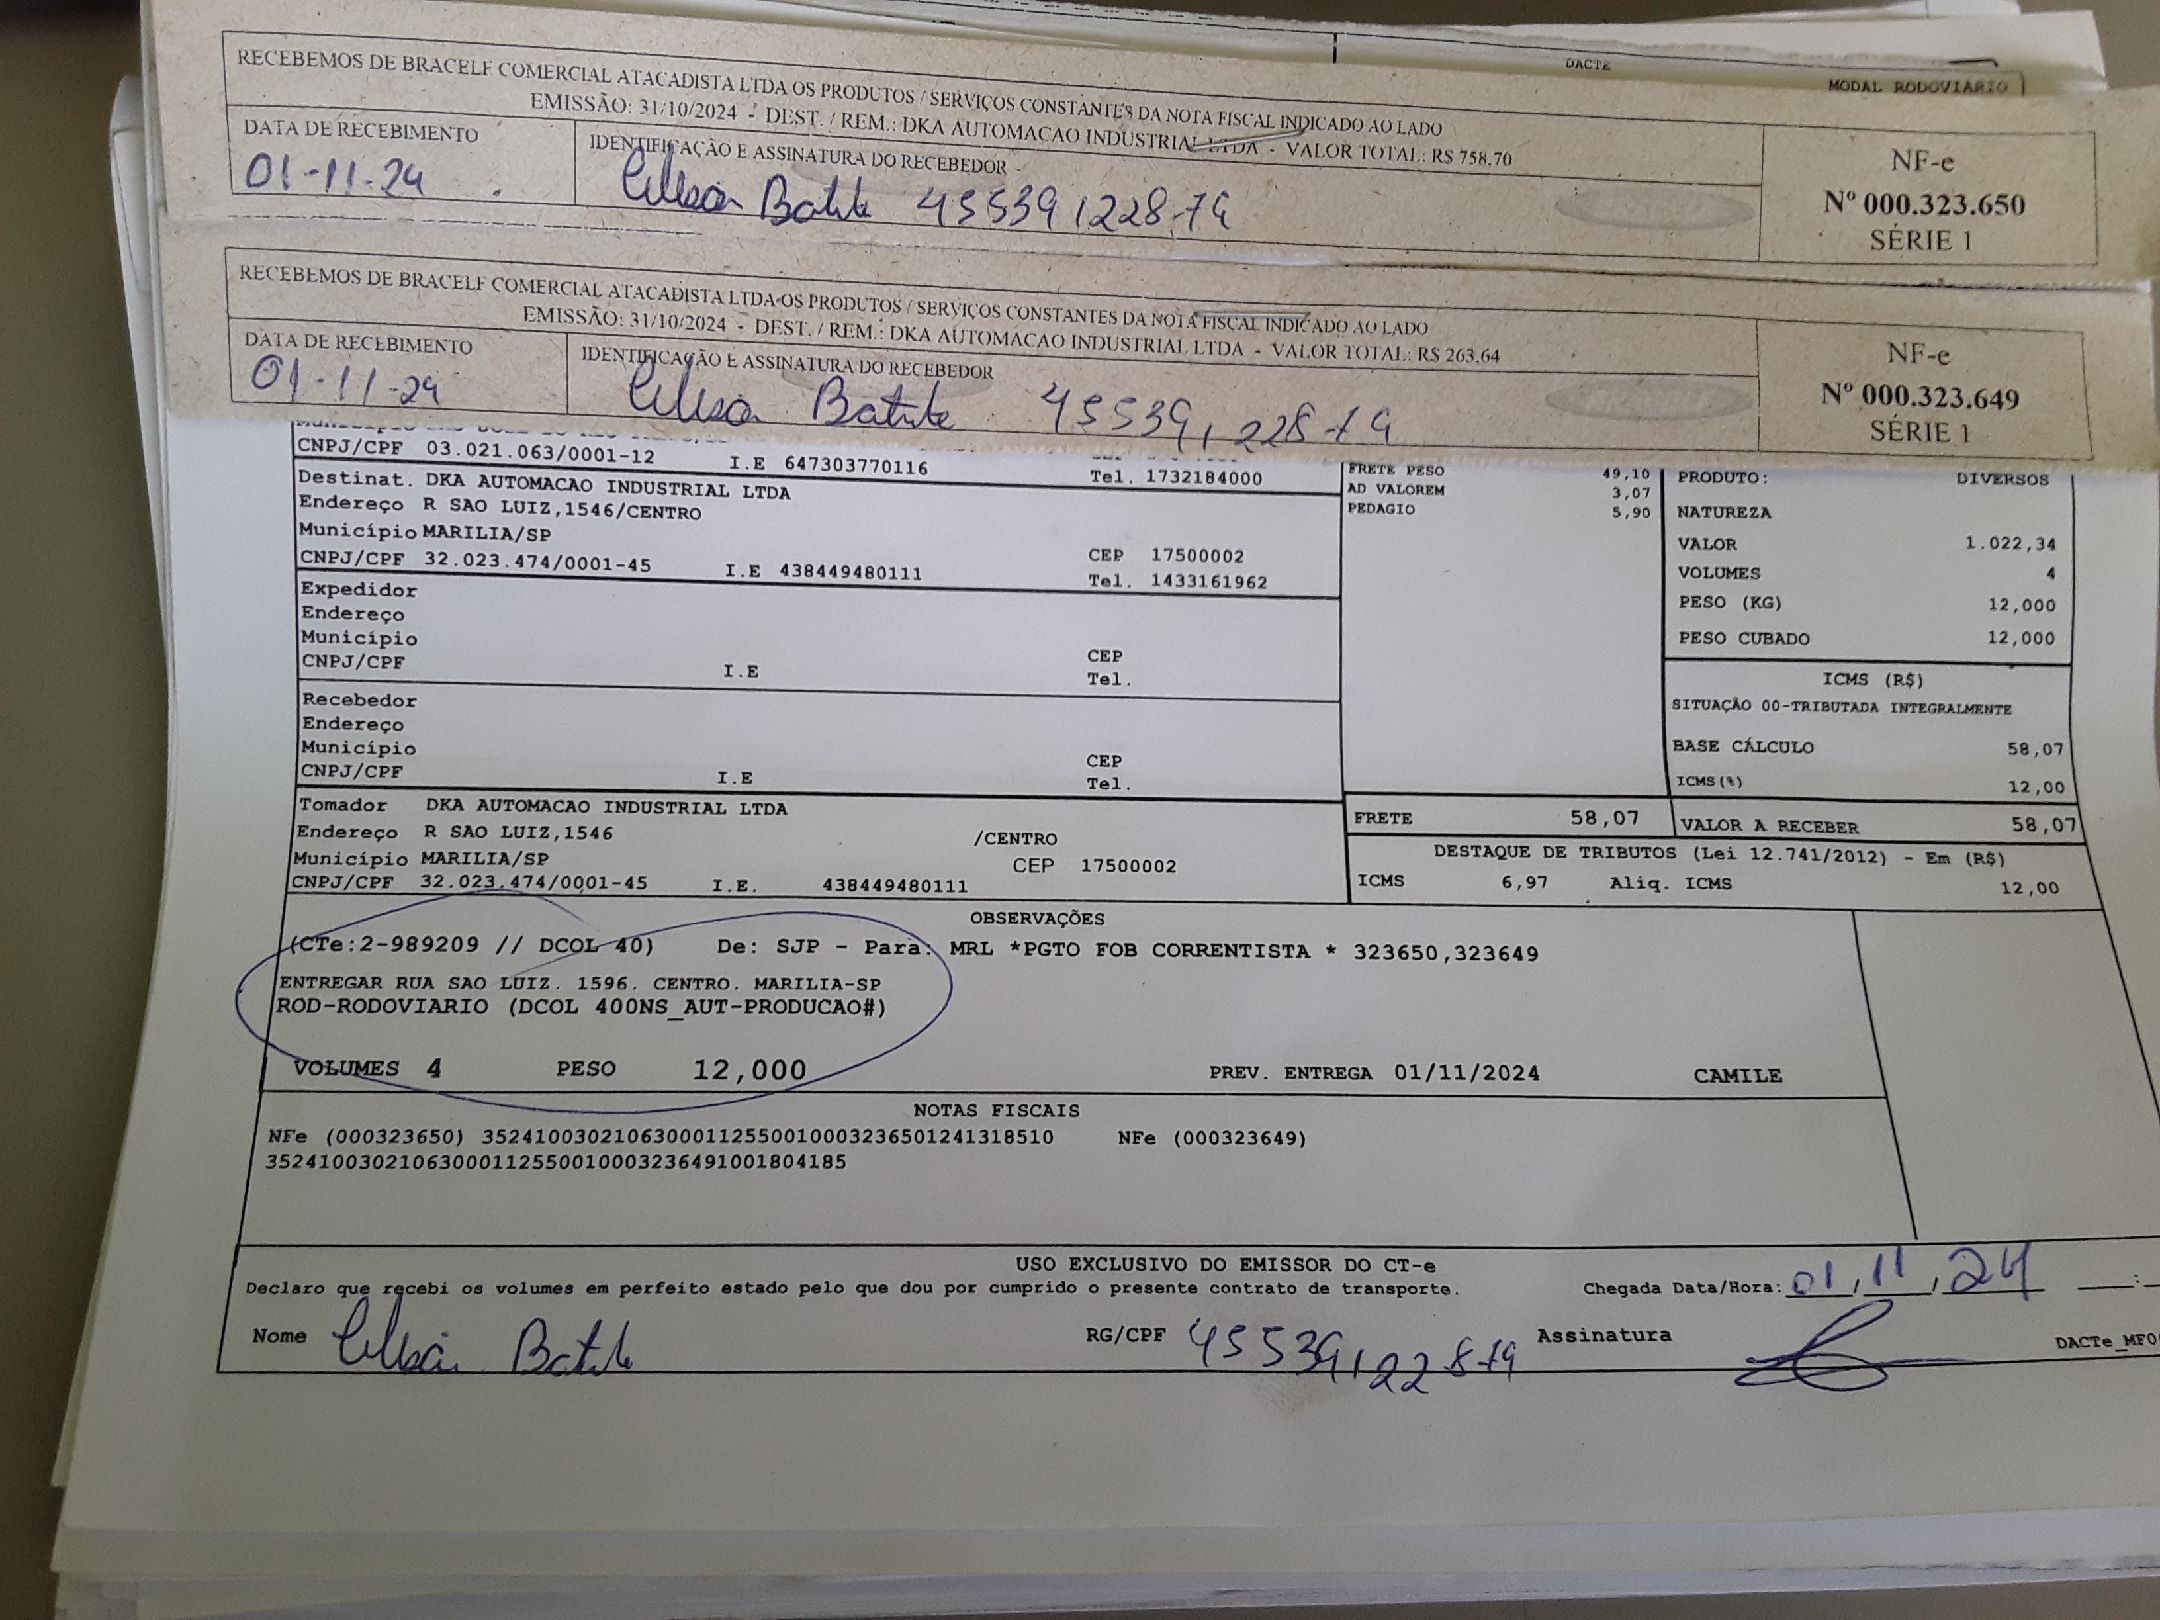 DACTE
MODAL RODOVIÁRIO
RECEBEMOS DE BRACELF COMERCIAL ATACADISTA LTDA OS PRODUTOS / SERVIÇOS CONSTANTES DA NOTA FISCAL INDICADO AO LADO
EMISSÃO: 31/10/2024 - DEST. / REM.: DKA AUTOMACAO INDUSTRIAL LTDA - VALOR TOTAL: R$ 758,70
DATA DE RECEBIMENTO
01-11-24
IDENTIFICAÇÃO E ASSINATURA DO RECEBEDOR
45539122879
NF-e
Nº 000.323.650
SÉRIE 1
RECEBEMOS DE BRACELF COMERCIAL ATACADISTA LTDA OS PRODUTOS / SERVIÇOS CONSTANTES DA NOTA FISCAL INDICADO AO LADO
EMISSÃO: 31/10/2024 - DEST. / REM.: DKA AUTOMACAO INDUSTRIAL LTDA - VALOR TOTAL: R$ 263,64
DATA DE RECEBIMENTO
01-11-24
IDENTIFICAÇÃO E ASSINATURA DO RECEBEDOR
45539122879
NF-e
Nº 000.323.649
SÉRIE 1
CNPJ/CPF 03.021.063/0001-12 I.E 647303770116 Tel. 1732184000
Destinat. DKA AUTOMACAO INDUSTRIAL LTDA
Endereço R SAO LUIZ,1546/CENTRO
Município MARILIA/SP CEP 17500002
CNPJ/CPF 32.023.474/0001-45 I.E 438449480111 Tel. 1433161962
Expedidor
Endereço
Município CEP
CNPJ/CPF I.E Tel.
Recebedor
Endereço
Município CEP
CNPJ/CPF I.E Tel.
Tomador DKA AUTOMACAO INDUSTRIAL LTDA
Endereço R SAO LUIZ,1546 /CENTRO
Município MARILIA/SP CEP 17500002
CNPJ/CPF 32.023.474/0001-45 I.E. 438449480111
FRETE PESO 49,10
AD VALOREM 3,07
PEDAGIO 5,90
FRETE 58,07
PRODUTO: DIVERSOS
NATUREZA
VALOR 1.022,34
VOLUMES 4
PESO (KG) 12,000
PESO CUBADO 12,000
ICMS (R$)
SITUAÇÃO 00-TRIBUTADA INTEGRALMENTE
BASE CÁLCULO 58,07
ICMS(%) 12,00
VALOR A RECEBER 58,07
DESTAQUE DE TRIBUTOS (Lei 12.741/2012) - Em (R$)
ICMS 6,97 Aliq. ICMS 12,00
OBSERVAÇÕES
(CTe:2-989209 // DCOL 40) De: SJP - Para: MRL *PGTO FOB CORRENTISTA * 323650,323649
ENTREGAR RUA SAO LUIZ. 1596. CENTRO. MARILIA-SP
ROD-RODOVIARIO (DCOL 400NS_AUT-PRODUCAO#)
VOLUMES 4 PESO 12,000 PREV. ENTREGA 01/11/2024 CAMILE
NOTAS FISCAIS
NFe (000323650) 35241003021063000112550010003236501241318510 NFe (000323649)
35241003021063000112550010003236491001804185
USO EXCLUSIVO DO EMISSOR DO CT-e
Declaro que recebi os volumes em perfeito estado pelo que dou por cumprido o presente contrato de transporte. Chegada Data/Hora: 01/11/24 :
Nome RG/CPF 45539122879 Assinatura